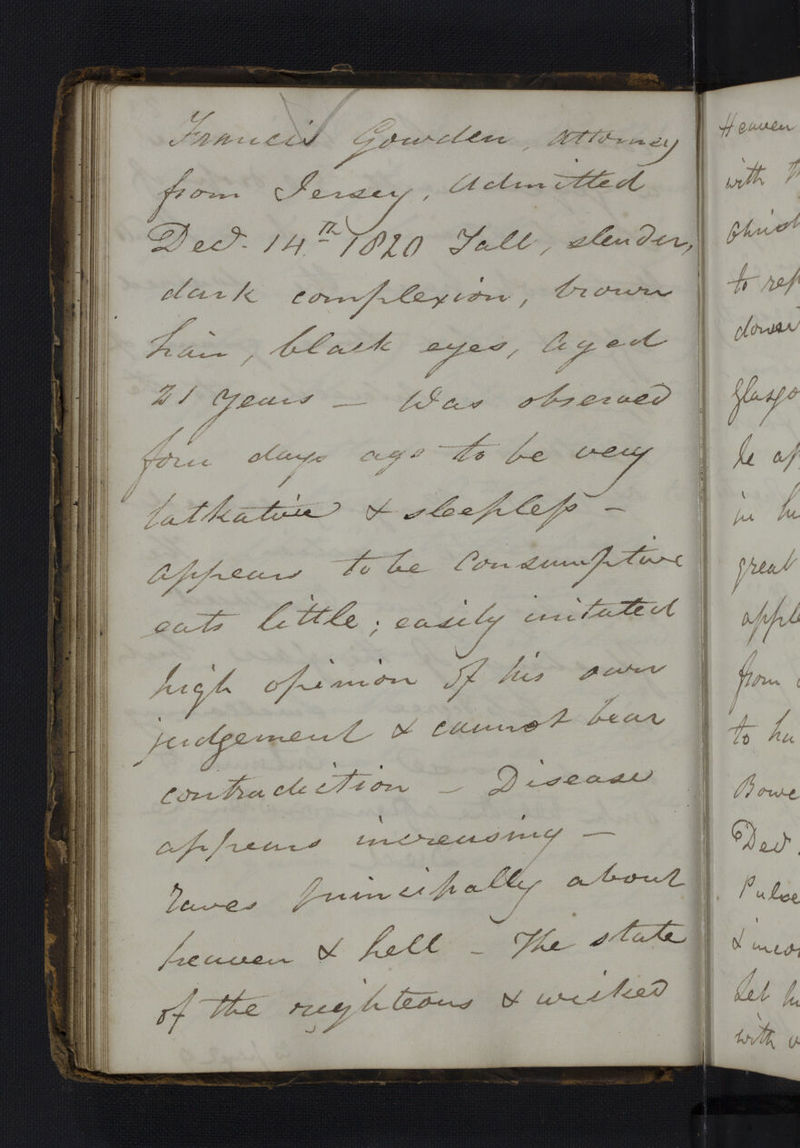 Francis Gowden, attorney
from Jersey, Admitted
Decr. 14th 1820 Tall, slender,
dark complexion, brown
hair, black eyes, Aged
21 years — Was observed
four days ago to be very
talkative & sleepless —
appears to be Consumptive
eats little; easily irritated
high opinion of his own
judgement & cannot bear
contradiction — Disease
appears increasing —
raves principally about
heaven & hell — The state
of the righteous & wicked
Heaven
with
Christ
to
he
in
great
from
to
Decr.
Pulse
&
Let
with